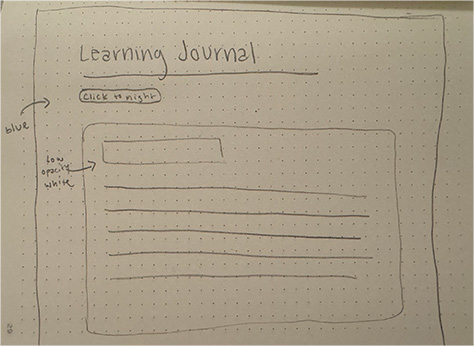 Learning Journal
click to night
blue
low
opacity
white